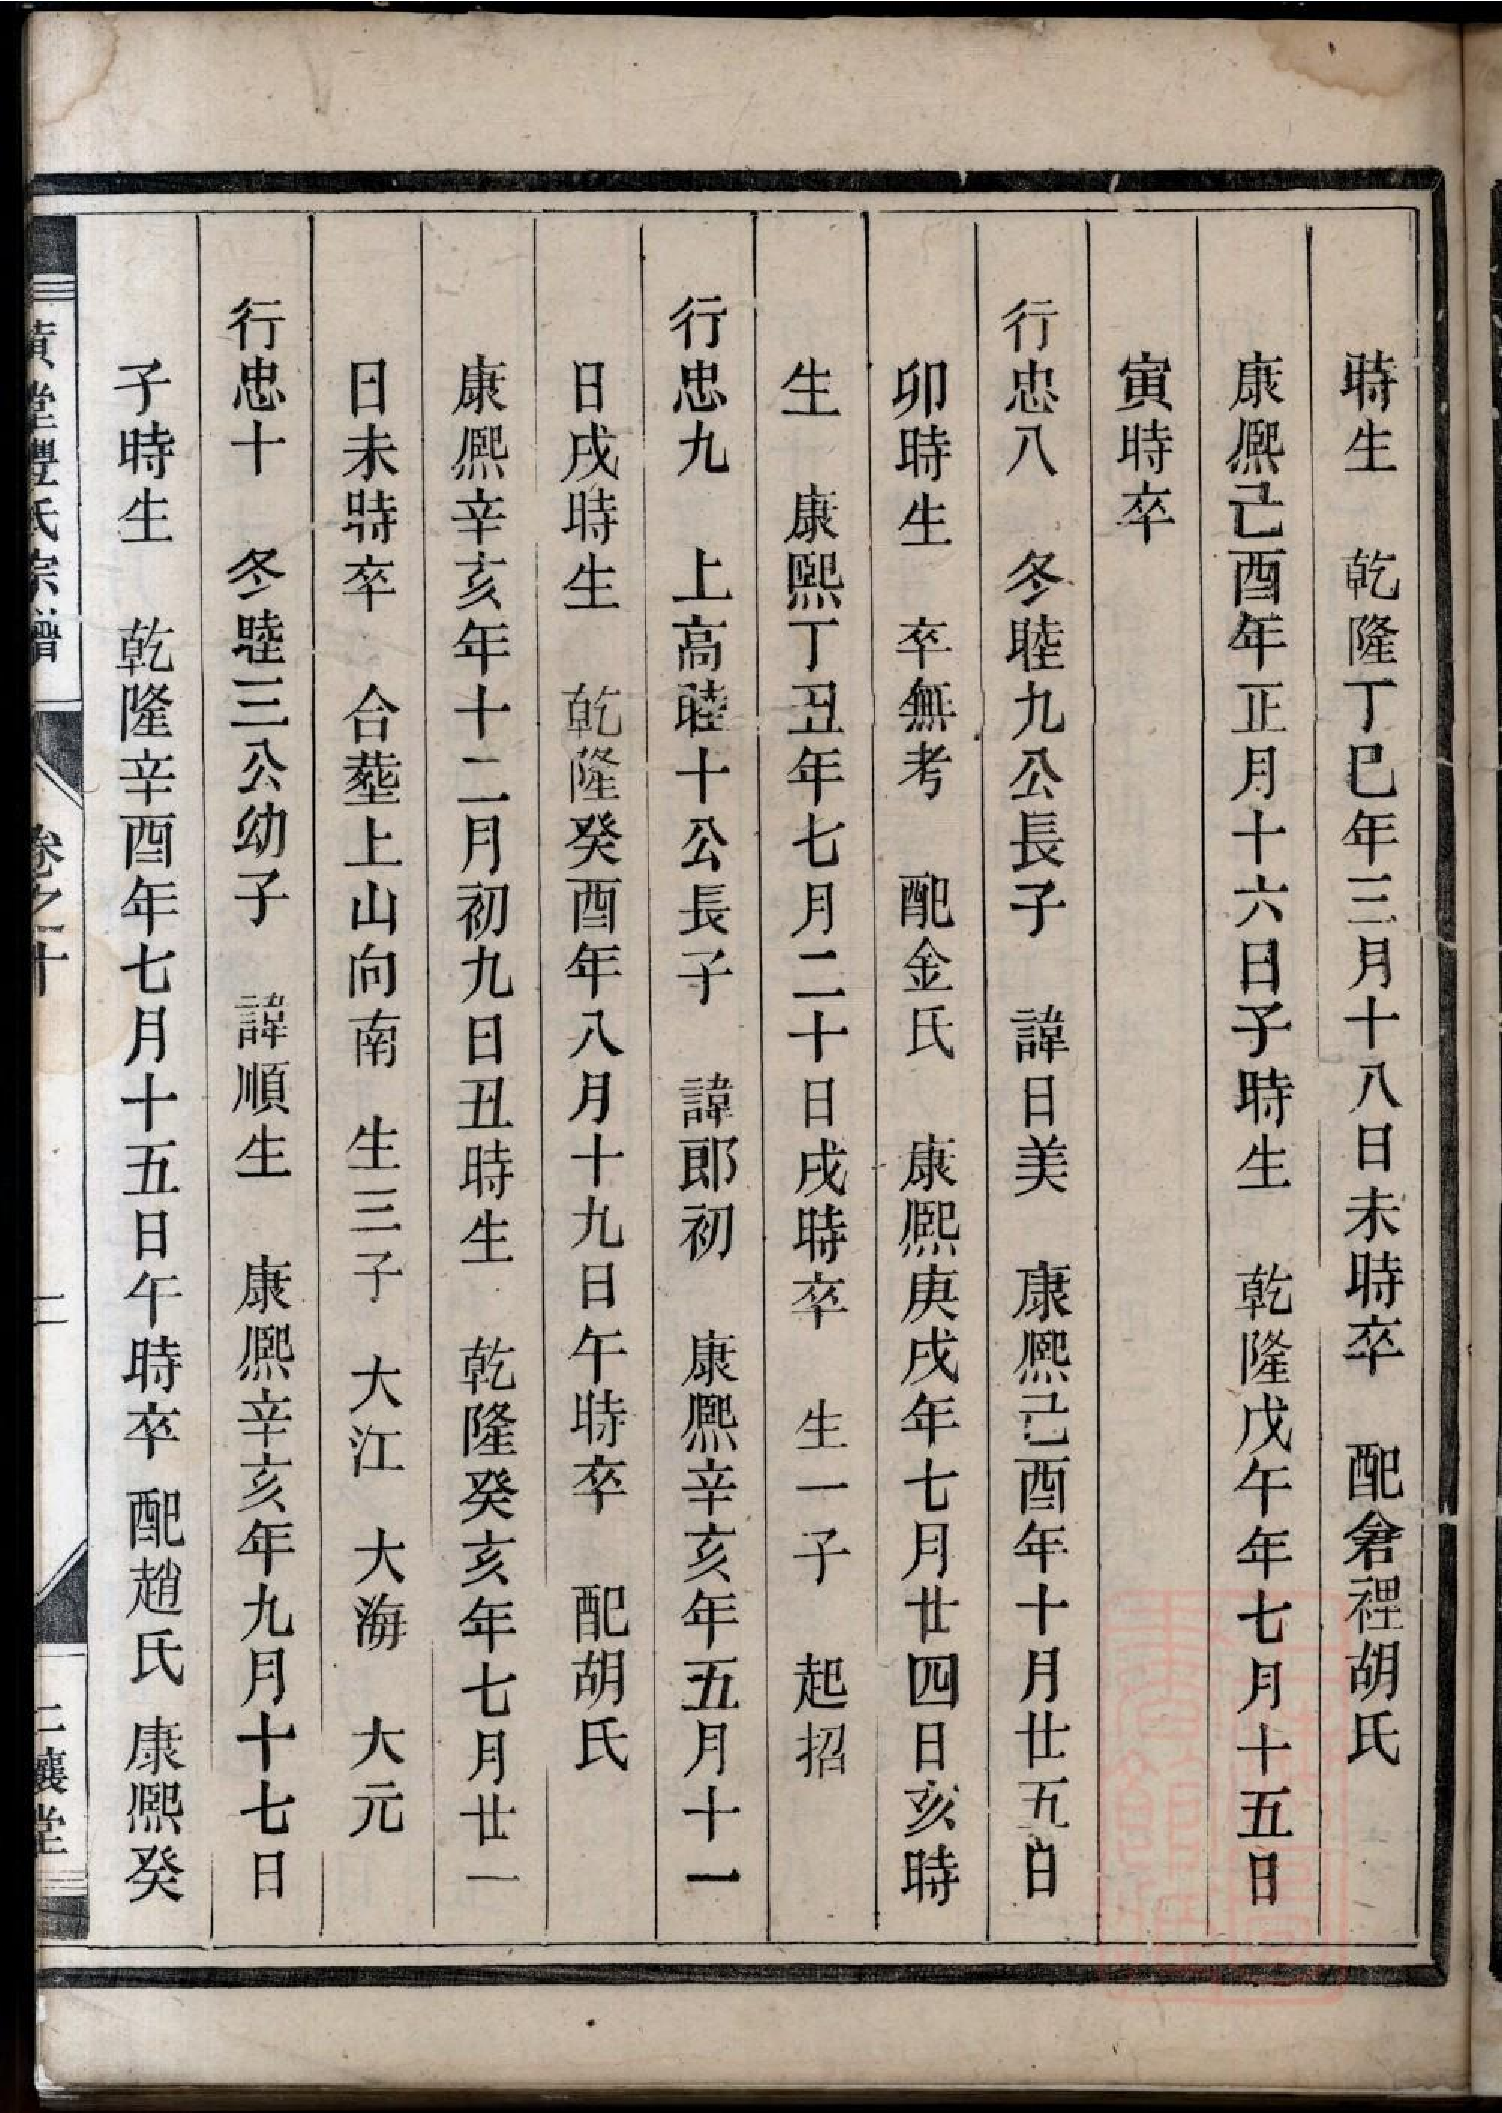 時生　乾隆丁巳年三月十八日未時卒　配倉裡胡氏
康熙己酉年正月十六日子時生　乾隆戊午年七月十五日
寅時卒
行忠八　冬睦九公長子　諱日美　康熙己酉年十月廿五日
卯時生　卒無考　配金氏　康熙庚戌年七月廿四日亥時
生　康熙丁丑年七月二十日戌時卒　生一子　起招
行忠九　上高睦十公長子　諱郎初　康熙辛亥年五月十一
日戌時生　乾隆癸酉年八月十九日午時卒　配胡氏
康熙辛亥年十二月初九日丑時生　乾隆癸亥年七月廿一
日未時卒　合塟上山向南　生三子　大江　大海　大元
行忠十　冬睦三公幼子　諱順生　康熙辛亥年九月十七日
子時生　乾隆辛酉年七月十五日午時卒　配趙氏　康熙癸
黃堂豐氏宗譜　卷之十　二